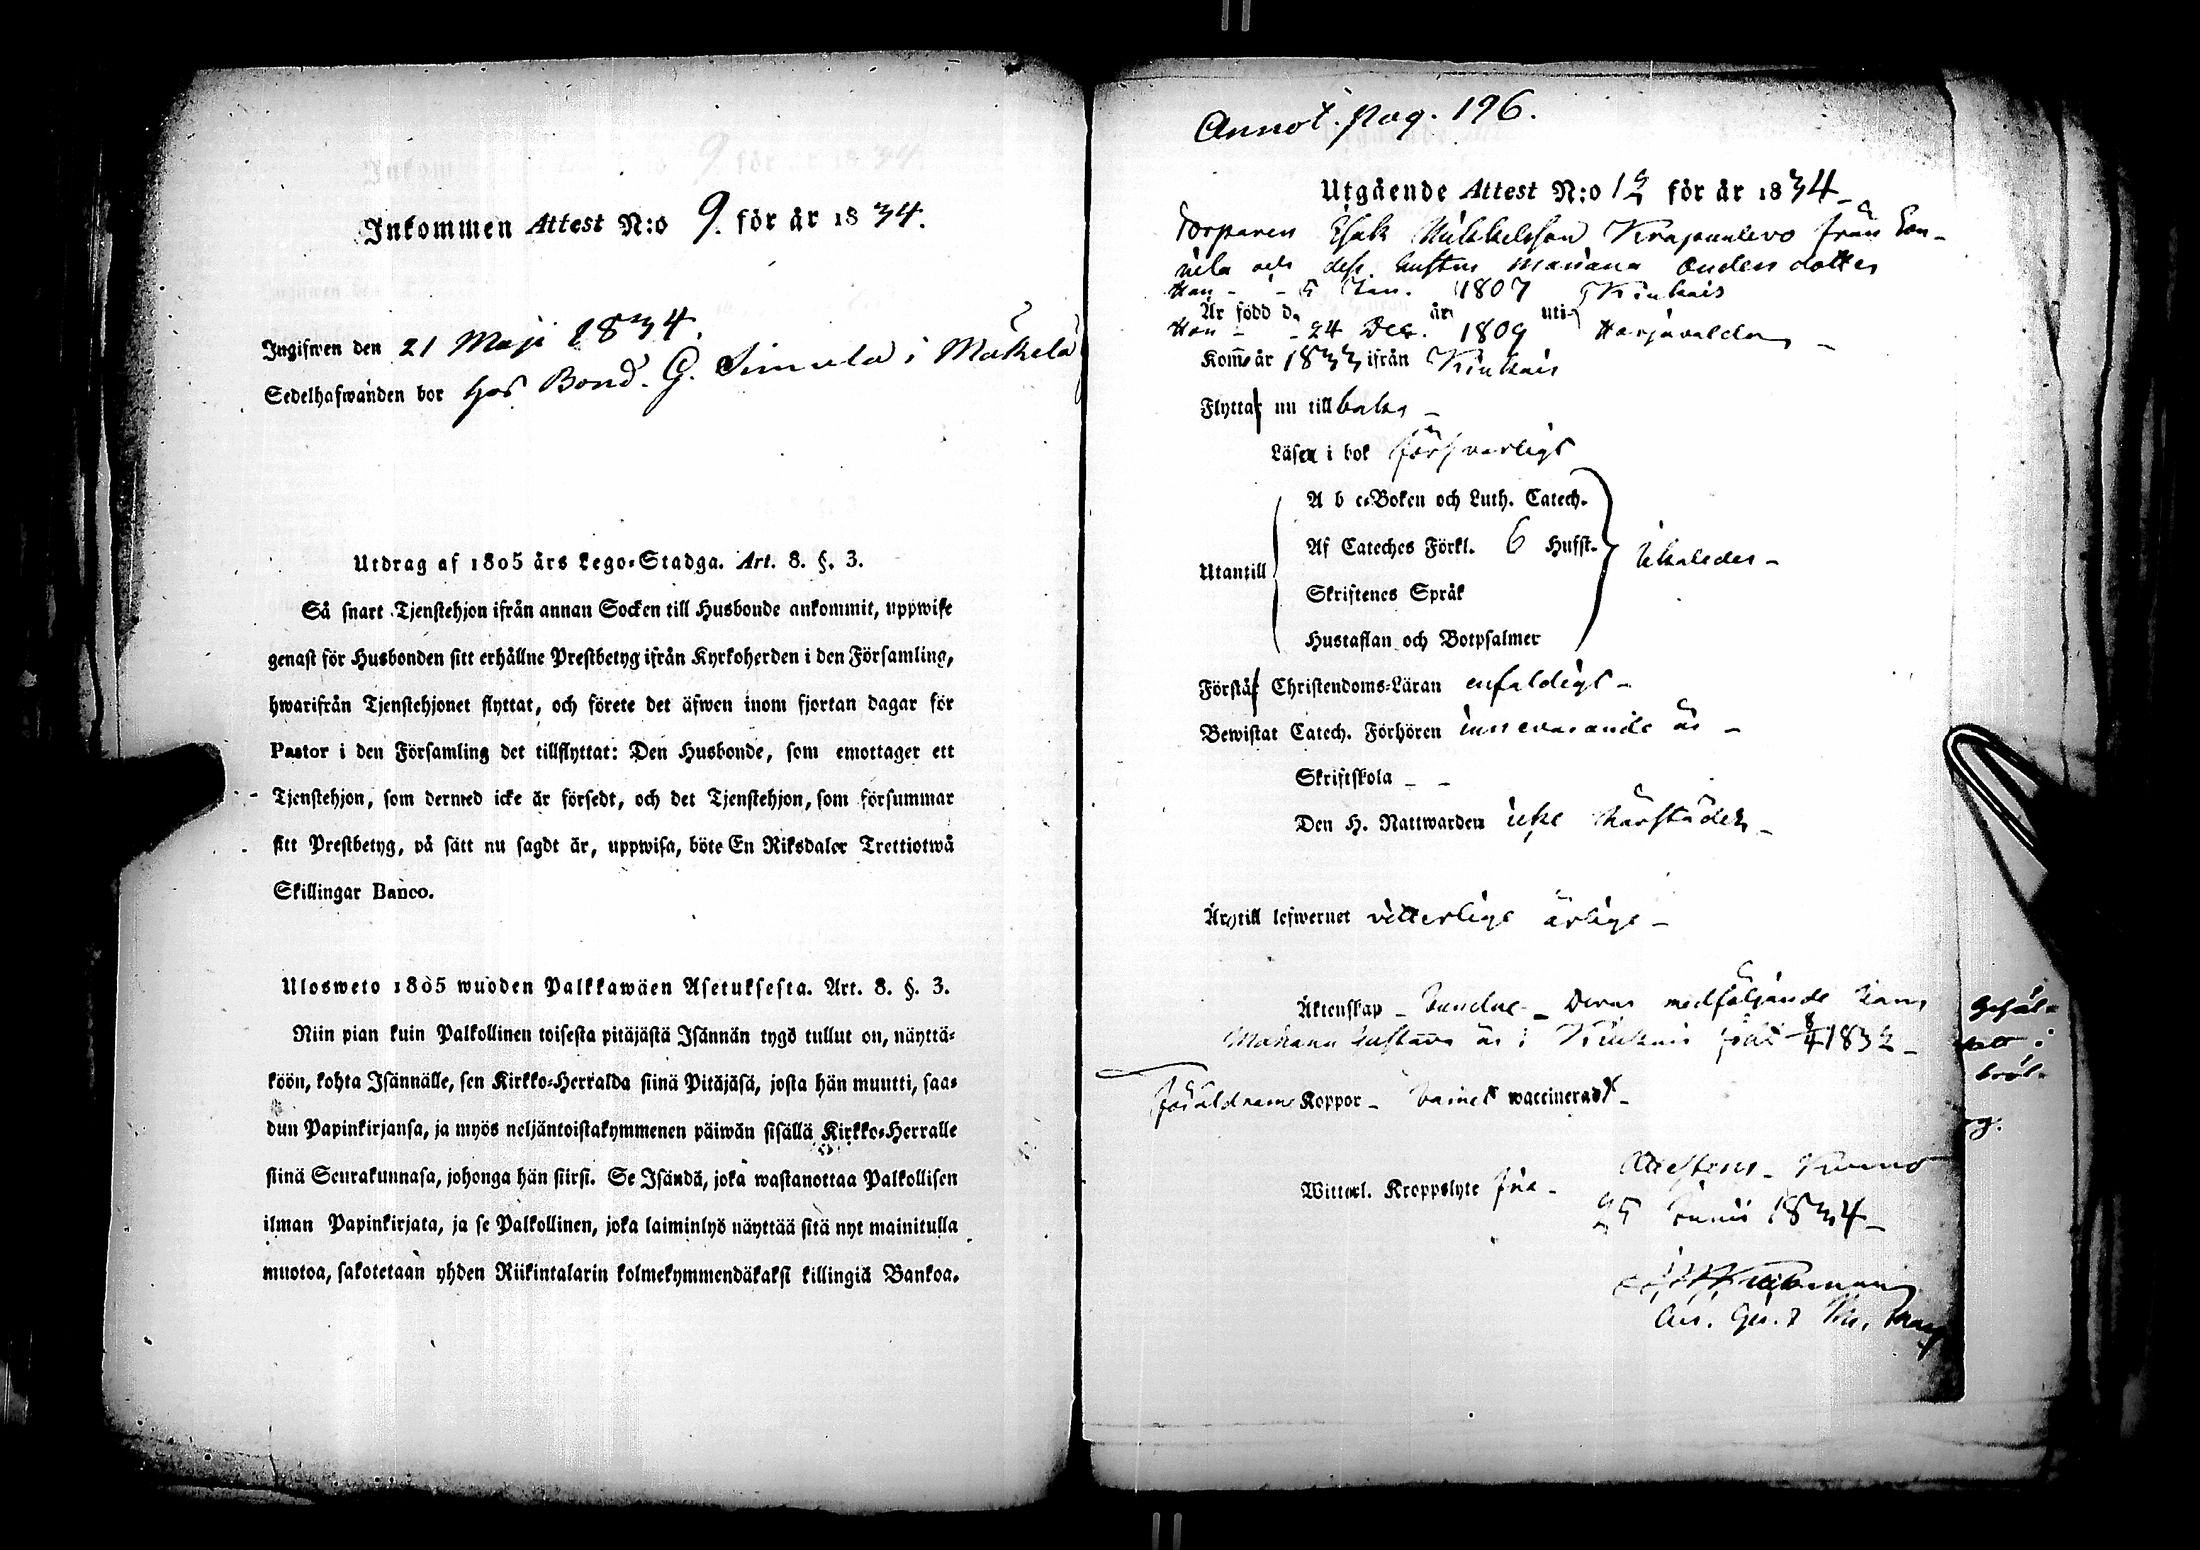 Inkommen Attest N:o 9. för år 1834.
Ingifwen den 21 Maji 1834.
Sedelhafwanden bor hos Bond. G. Simula i Mäkelä
Utdrag af 1805 års Lego-Stadga. Art. 8. §. 3.
Så snart Tjenstehjon ifrån annan Socken till Husbonde ankommit, uppwise
genast för Husbonden sitt erhållne Prestbetyg ifrån Kyrkoherden i den Församling,
hwarifrån Tjenstehjonet flyttat, och förete det äfwen inom fjortan dagar för
Pastor i den Församling det tillflyttat: Den Husbonde, som emottager ett
Tjenstehjon, som dermed icke är försedt, och det Tjenstehjon, som försummar
sitt Prestbetyg, på sätt nu sagdt är, uppwisa, böte En Riksdaler Trettiotwå
Skillingar Banco.
Ulosweto 1805 wuoden Palkkawäen Asetuksesta. Art. 8. §. 3.
Niin pian kuin Palkollinen toisesta pitäjästä Isännän tygö tullut on, näyttä-
köön, kohta Isännälle, sen Kirkko-Herralda siinä Pitäjäsä, josta hän muutti, saa-
dun Papinkirjansa, ja myös neljäntoistakymmenen päiwän sisällä Kirkko-Herralle
siinä Seurakunnasa, johonga hän siirsi. Se Isändä, joka wastanottaa Palkollisen
ilman Papinkirjata, ja se Palkollinen, joka laiminlyö näyttää sitä nyt mainitulla
muotoa, sakotetaan yhden Riikintalarin kolmekymmendäkaksi killingiä Bankoa.
Annot. pag. 196.
Utgående Attest N:o 12 för år 1834
Torparen Isak Mikkelsson från
och dess hustru Mariana dotter
Han - 5 Jan. 1807 Kiukais
Är född d. år uti
Hon - 24 Dec. 1809 Harjavalda
Kom år 1833 ifrån Kiukais
Flyttar nu tillbaka
Läser i bok försvarligt
A b c-Boken och Luth. Catech.
Af Cateches Förkl. 6 Hufst. likaledes
Utantill
Skriftenes Språk
Hustaflan och Botpsalmer
Förstår Christendoms-Läran enfaldigt
Bewistat Catech. Förhören innevarande år
Skriftskola - -
Den H. Nattwarden icke härstädes
Äro till lefwernet vitterligt ärlige
Äktenskap - bundne - Deras medföljande barn
Mariana Gustava är i Kiukais född 8/4 1832
Föräldrarne Koppor - barnet waccineradt
Witterl. Kroppslyte fria - Attesteras
25 Junii 1834